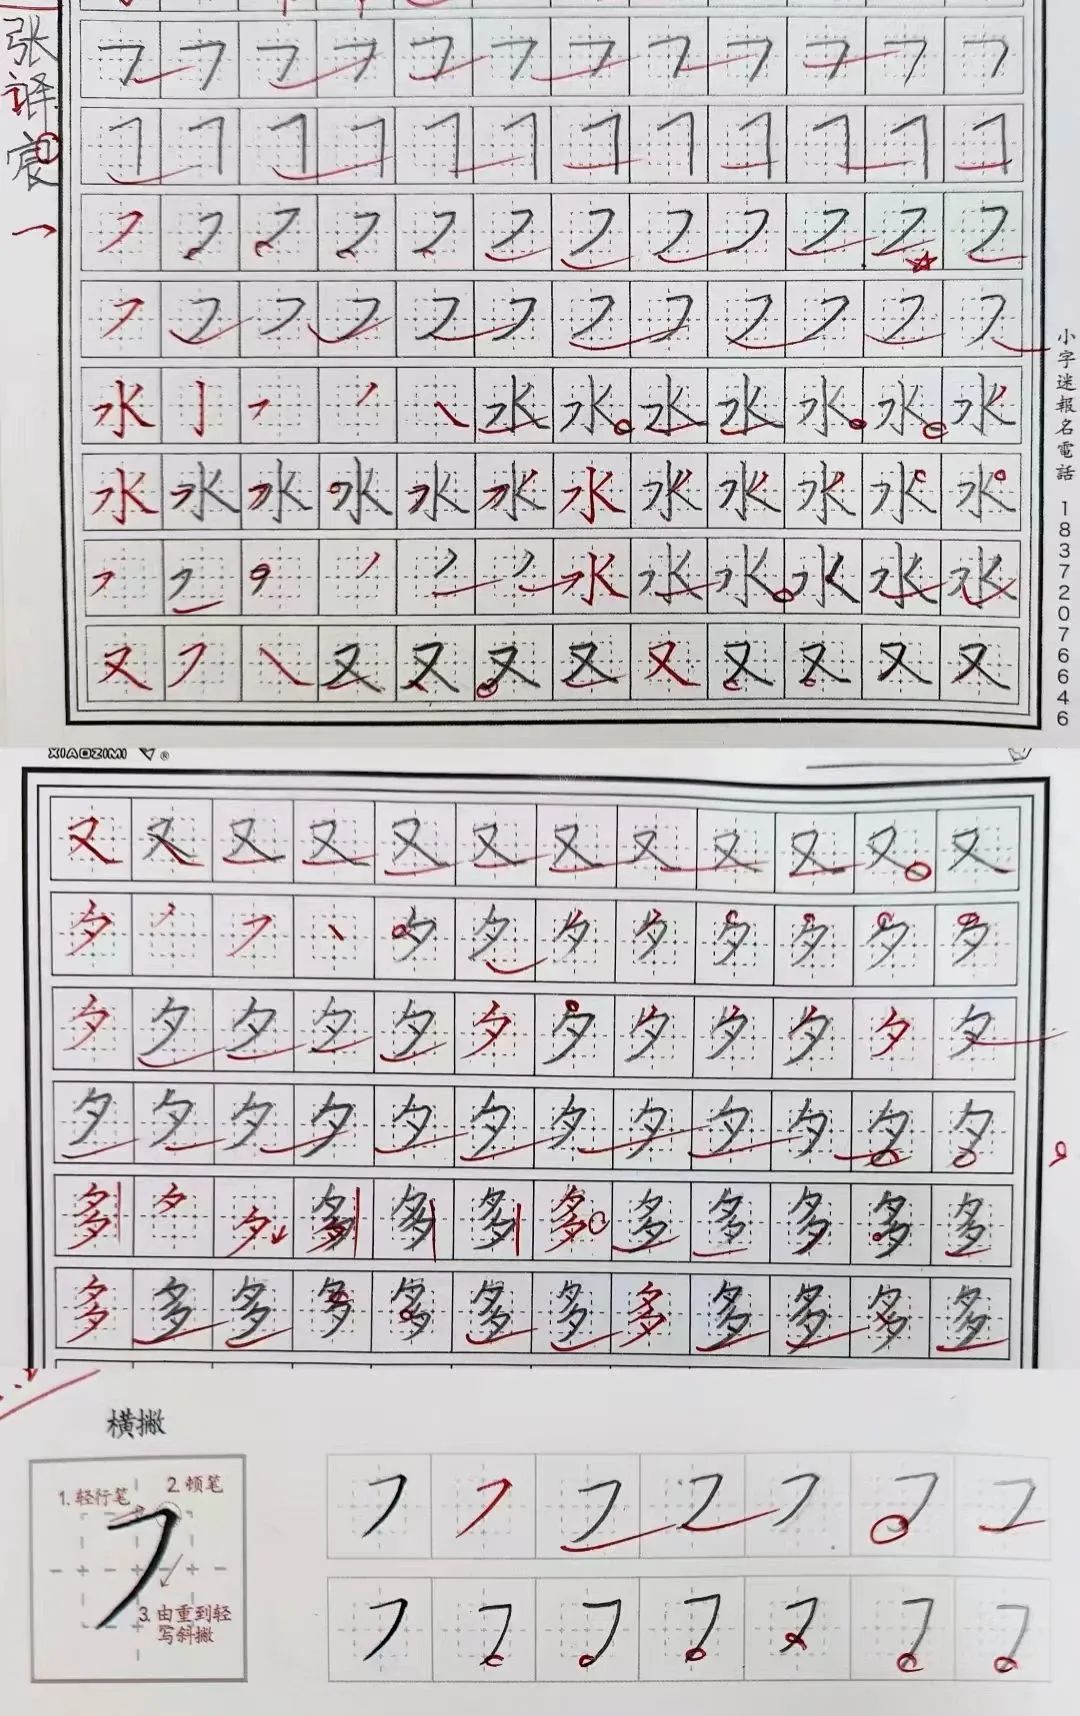 张译宸
水 水 水 水 水 水 水 水
水 水 水 水 水 水 水 水 水 水 水 水
水 水 水 水 水 水
又 又 又 又 又 又 又 又 又 又
小字迷報名電話 18372076646
XIAOZIMI ®
又 又 又 又 又 又 又 又 又 又 又 又
夕 夕 夕 夕 夕 夕 夕 夕 夕
夕 夕 夕 夕 夕 夕 夕 夕 夕 夕 夕 夕
夕 夕 夕 夕 夕 夕 夕 夕 夕 夕 夕 夕
多 夕 夕 多 多 多 多 多 多 多 多 多
多 多 多 多 多 多 多 多 多 多 多 多
横撇
1.轻行笔
2.顿笔
3.由重到轻
写斜撇